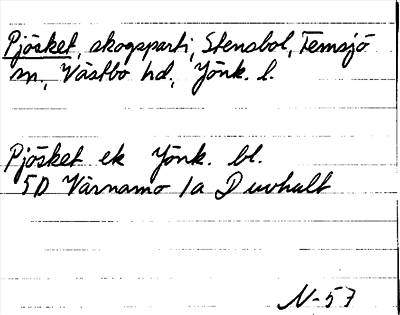 Pjösket, skogsparti, Stensbol, Femsjö
sn, Västbo hd, Jönk. l.
Pjösket ek Jönk. bl.
5D Värnamo 1a Duvhult
N-57